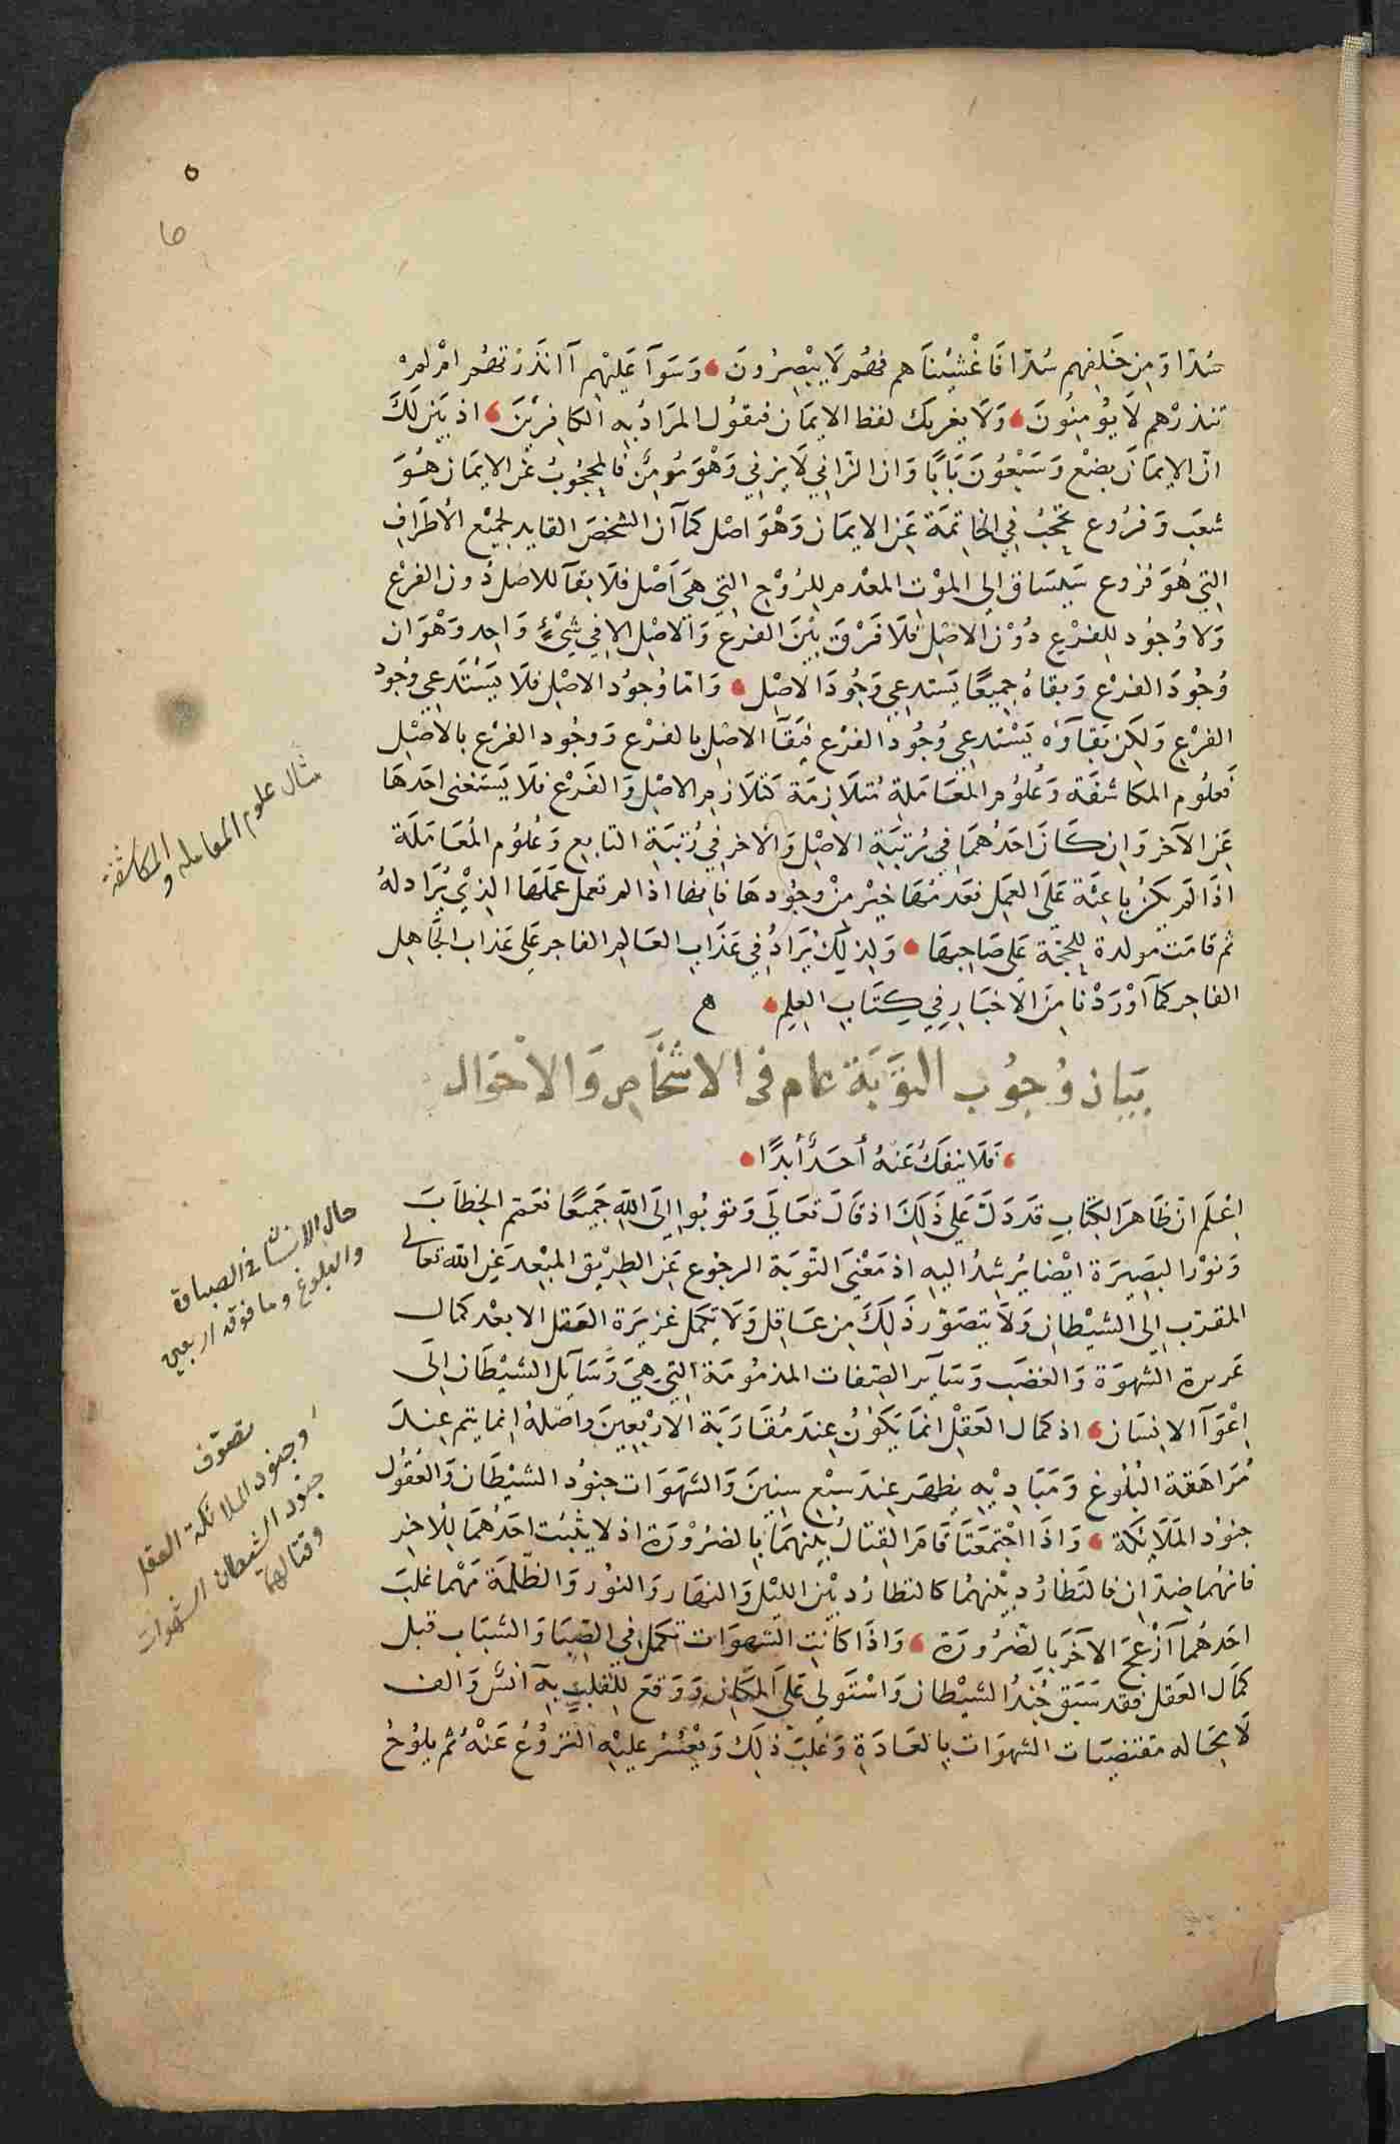 ٥
سُدّا وَمِن خَلفِهم سُدّا فَاغْشَيْنَاهم فهُم لَا يُبْصِرُونَ وَسَوَآ عَلَيْهِم آانذَرْتهُم امْ لمْ
تنذرْهم لَا يُؤمِنُونَ وَلَا يغرنك لفظ الايمَان فنقوُل المرَادُ بِه الكافِرِيْنَ اذ بَيَن لَكَ
انّ الايمَانَ بضْع وَسَبْعُونَ بَابًا وَان الزانِي لَا يزنِي وَهْوَ مُومِنٌ فالمحجُوبُ عَن الايمَان هُوَ
شعَب وَفرُوع يحجبُ فِي الخاتِمَة عَنِ الايمَان وَهْوَ اصْل كمَآ ان الشخصَ القايد لجميْع الأطرَافِ
التِي هُوَ فروع سَيُسَاق الي الموْتِ المعْدم للرُوْحِ التِي هيَ اَصْل فلَا بقآ للاصْل دُون الفرْع
وَلا وُجُود للفرْعِ دُوْن الاصْل فلَا فَرْقَ بَيْنَ الفرع وَالاصْلِ الا فِي شَيْءٍ وَاحِد وَهْوَ ان
وُجُودَ الفرْع وَبقاهُ جميعًا يَستدعِي وَجُودَ الاصْلِ وَامّا وُجوُد الاصْل فلَا يَسْتَدعِي وُجُود
الفرْعِ وَلَكِن بَقآؤه يَسْتدعِي وُجُود الفرْع فبَقآ الاصْل بالفرْع وَوجُود الفرْع بالاصْل
فعلُوم المكاشفَة وَعُلوُم المُعَامَلِة مُتلَازِمَة كتلَازم الاصْل وَالفَرْع فلَا يَستَغنى احَدهَا
عَنِ الآخَر وَان كَانَ احَدُهُمَا فِي رُتبَةِ الاصْلِ وَالاخر فِي رُتبَةِ التابع وَعُلوُم المُعَامَلَة
اذَا لَم يكنْ باعِثَة عَلَى العمَل فعَدمُهَا خيْر مِنْ وجُودهَا فانها اذا لم تعمل عمَلهَا الذِيْ يُرَاد لهُ
ثم قامَت مولدة للحجّة عَلى صَاحِبهَا وَلِذلِكَ يُزَادُ فِي عَذَابِ العَالِم الفاجر عَلى عَذاب الجَاهِل
الفاجر كمَآ اوْرَدْنا مِنَ الاخبَارِ فِي كِتَابِ العِلِم ھ
بَيَان وُجوُب التوَّبَة عام فى الاشخَاصِ وَالاحْوَال
فَلَا ينفَكُ عَنهُ أحَدٌ أبدًا
اعْلَم انّ ظَاهرَ الكِتَابِ قدَ دَلَّ عَلَى ذَلِكَ اذ قَالَ تعَالَي وَتوبُوا اِلَى اللهِ جَمِيعًا فعَمّم الخِطَابَ
وَنوْر البصِيرَة ايْضا يُرشدُ اليهِ اذ مَعْنَى التوَبَة الرجوْع عَنِ الطرِيْق المبْعد عَنِ الله تعالى
المقرّب الي الشيْطانِ وَلَا يتصَوّر ذَلِكَ مِن عَاقِل وَلَا تكمَل غريزَة العَقل الا بعْد كمَال
غريزة الشهوَة وَالغضَب وَسَايَر الصِفات المذمُومَة التِي هِيَ وَسَآيل الشيْطَان الىَ
اغْوَآ الانِسَان اذ كمَال العَقْل انمَا يَكوُنُ عِندَ مُقارَبَة الأرْبعِينَ وَاصْلهُ انِما يتم عِندَ
مُرَاهَقة البُلُوغ وَمَبَادِيْهِ يظهَر عِندَ سَبْعِ سِنِينَ وَالشهَوَات جنوُد الشيْطَان وَالعقوُل
جنوْد المَلَايكَة وَاذَا اجْتمَعَتَا قَامَ القِتالُ بيْنهمَا بالضرُوْرَة اذ لا يثبُت احَدُهُمَا للاخِر
فانهُما ضِدّانِ فالتَطارُد بيْنهُما كالتطارُد بيْن الليْل وَالنهَار وَالنوُر وَالظّلمَة مَهْما غلبَ
احَدهُما آزْعَجَ الآخَر بالضّرُورَة وَاذَا كانَتِ الشهوَات تكمَل في الصِّبَا وَالشبَاب قبل
كمَالِ العَقل فقد سَبَقَ جُندُ الشيْطان وَاسْتَولى عَلَى المكَانِ وَوَقعَ للقلْبِ بِه آنسٌ وَالف
لَا محَاله مقتضيَات الشهوَات بالعَادَة وَغلبَ ذلِكَ وَيعْسُر عليْه النزوُع عَنْهُ ثم يلوُحُ
مثال علوم المعامله و
المكاشفة
حال الانسان فى الصباوة
والبلوغ وما فوقه اربعين
تصوّف
وجنود الملائكة العقل
جنود الشيطان الشهوات
وقتالها